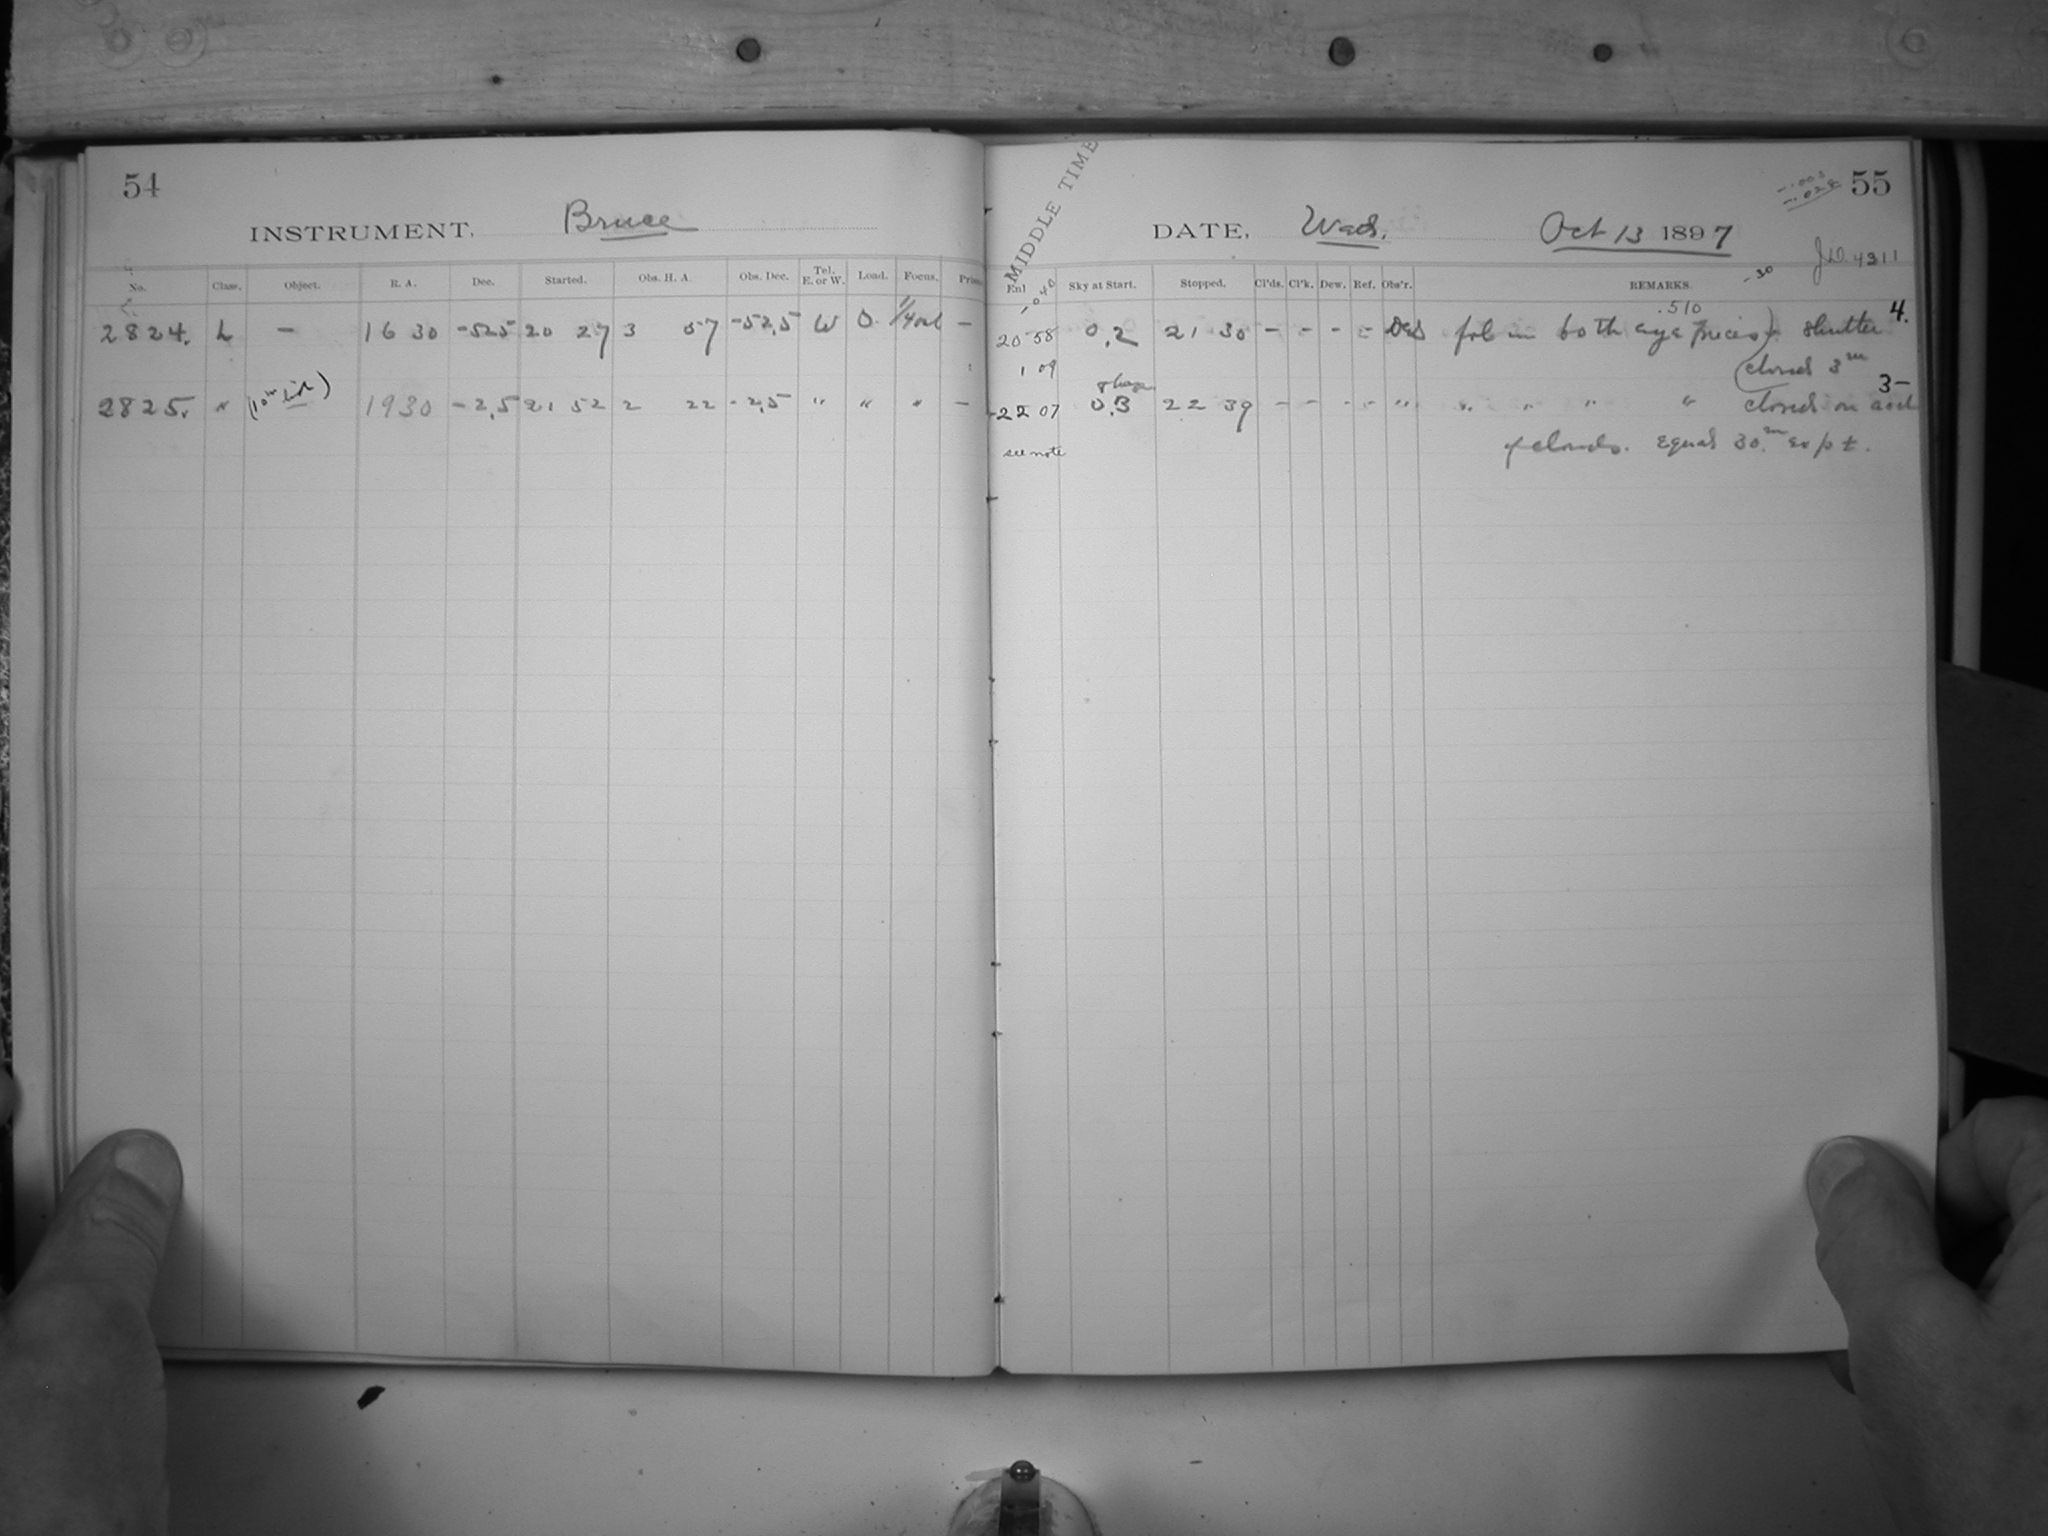 54
INSTRUMENT, Bruce
No. Class. Object. R. A. Dec. Started. Obs. H. A. Obs. Dec. Tel. E. or W. Load. Focus.
2824. L — 16 30 -52.5 20 27 3 07 -52.5 W O —
2825. " (10m list) 19 30 -2.5 21 52 2 22 -2.5 " " " —
MIDDLE TIME
55
DATE, Wed. Oct 13 1897
J.D. 4211
-30
Sky at Start. Stopped. Cl'ds. Cl'k. Dew. Ref. Obs'r. REMARKS.
.510
20 58 0.2 21 30 - - - - fol in both eye pieces) shutter 4.
1 09
closed 3m
22 07 0.3 22 39 - - - - " " " " " closed on acct 3-
see note
of clouds. Equal 30m exp ±.